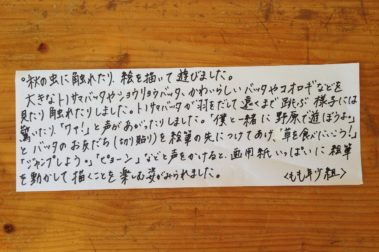 ○秋の虫に触れたり、絵を描いて遊びました。
大きなトノサマバッタやショウリョウバッタ、かわいらしいバッタやコオロギなどを
見たり触れたりしました。トノサマバッタが羽をだして遠くまで跳ぶ様子には
驚いたり、「ワァ!」と声があがったりしました。「僕と一緒に野原で遊ぼうよ。」
とバッタのお友だち(切り貼り)を絵筆の先につけてあげ、「草を食べにいこう!」
「ジャンプしよう。」「ピョーン」などと声をかけると、画用紙いっぱいに絵筆
を動かして描くことを楽しむ姿がみられました。
<もも年少組>